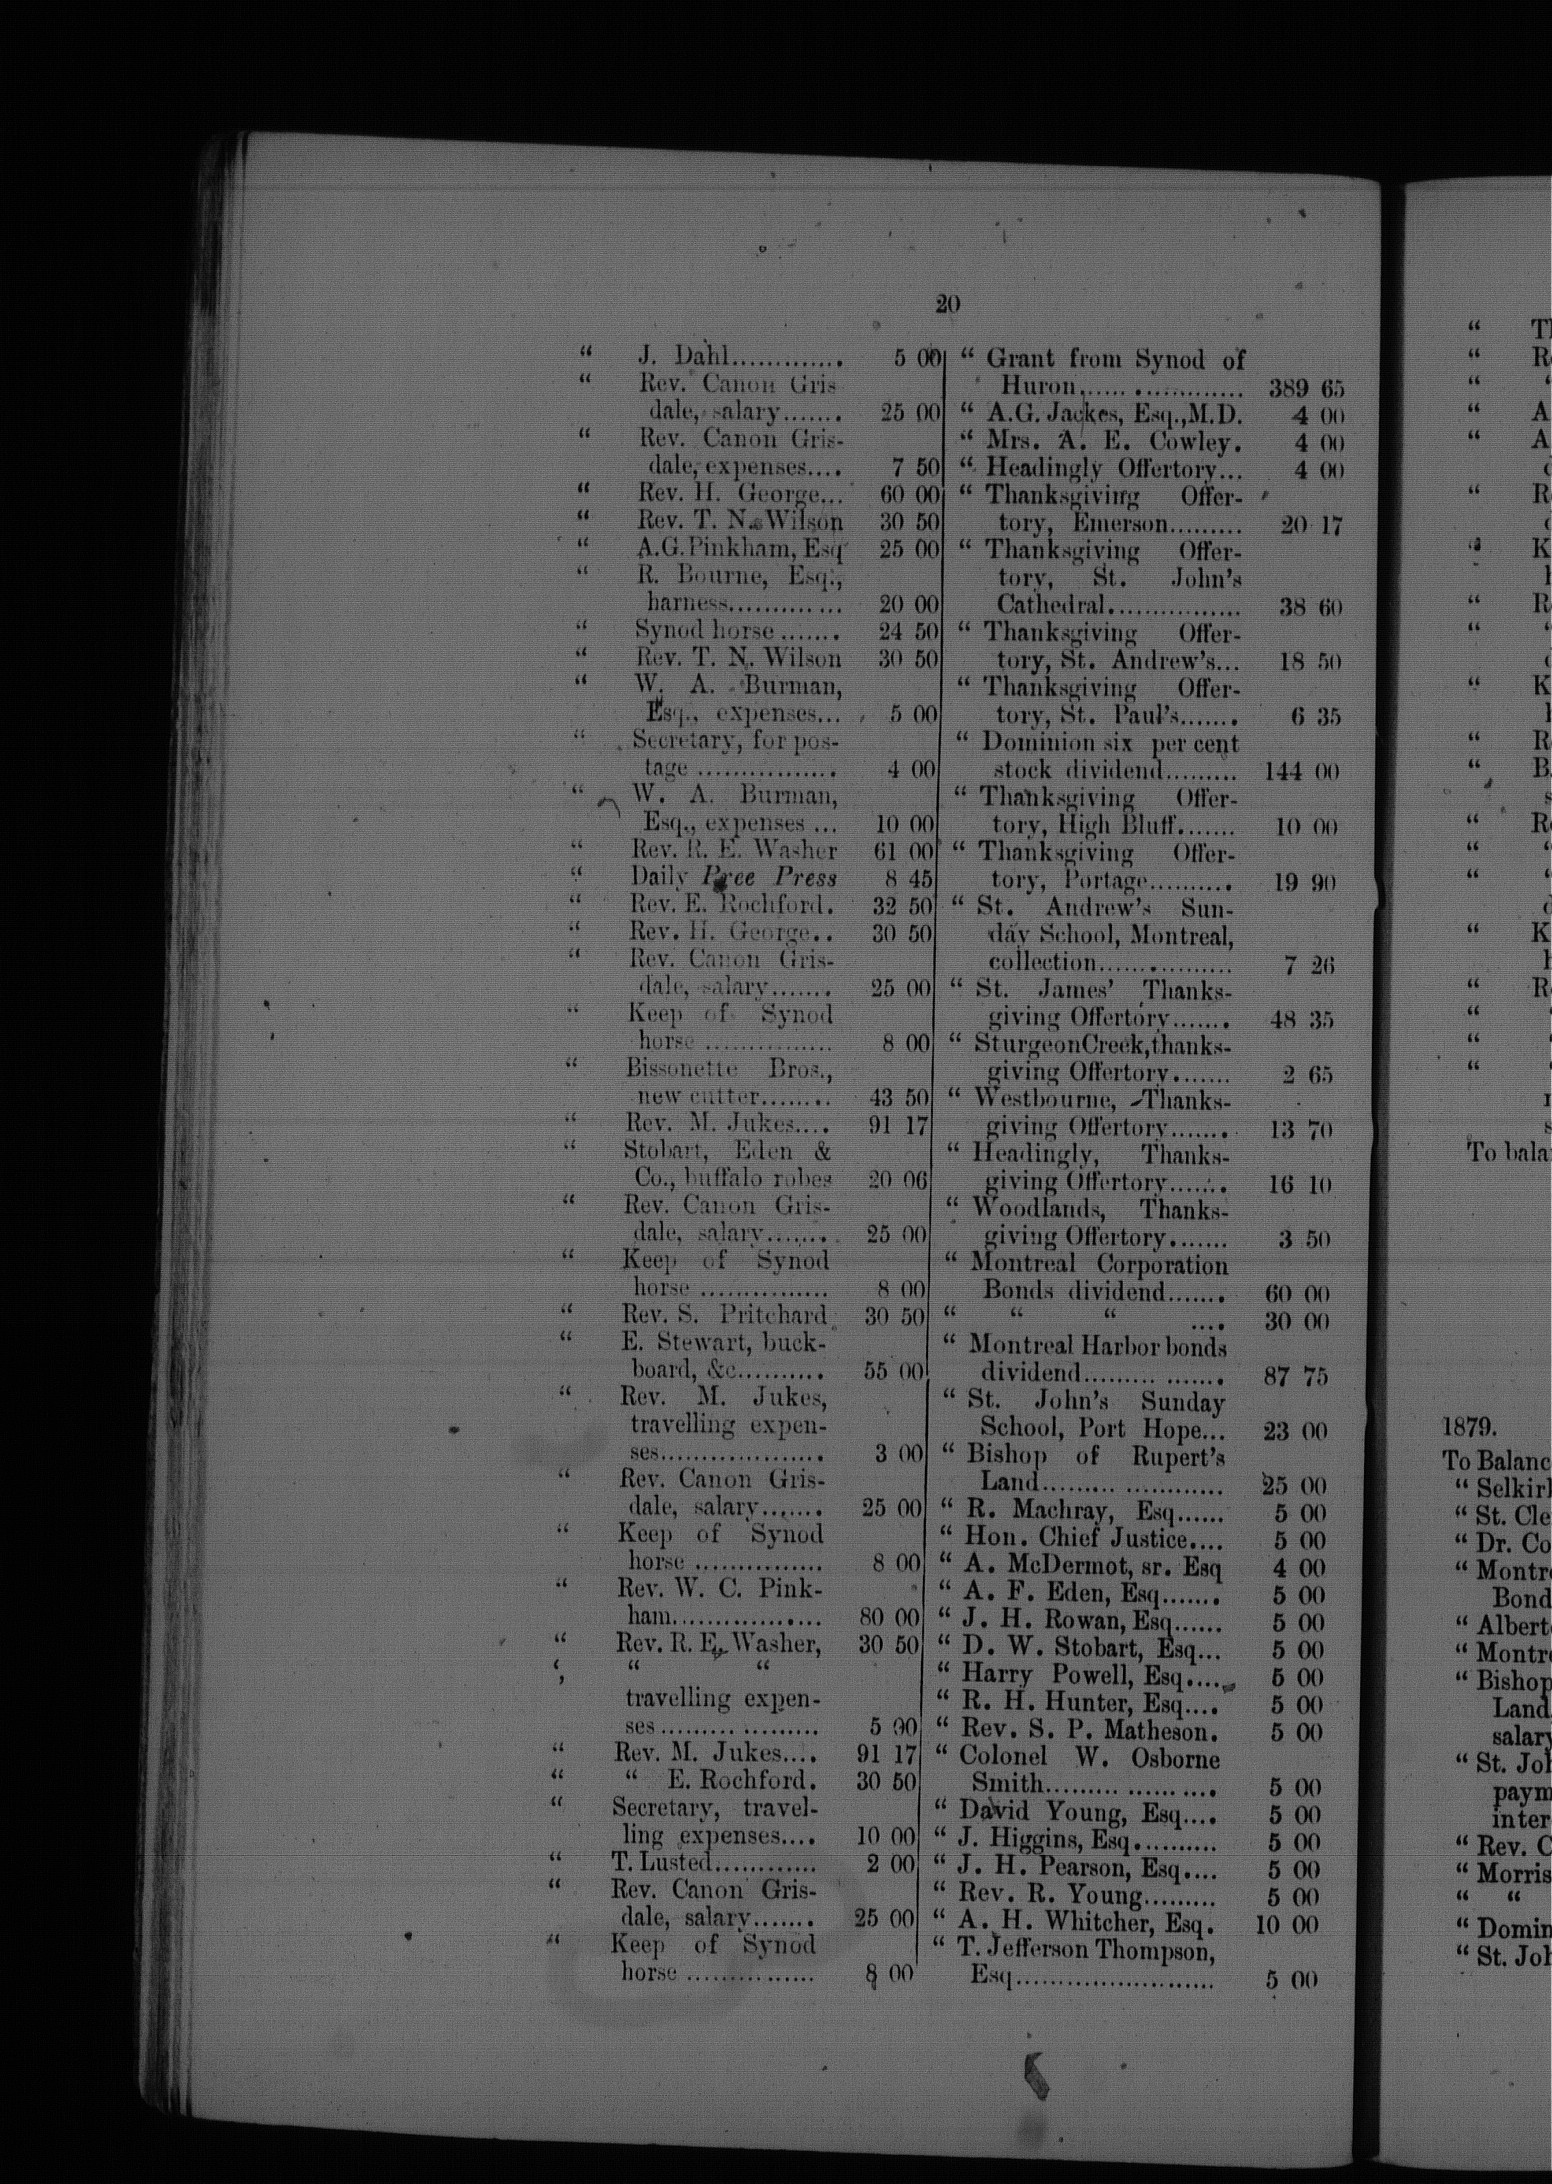 20
“ J. Dahl............. 5 00
“ Rev. Canon Gris
dale, salary....... 25 00
“ Rev. Canon Gris-
dale, expenses.... 7 50
“ Rev. H. George... 60 00
“ Rev. T. N. Wilson 30 50
“ A.G. Pinkham, Esq 25 00
“ R. Bourne, Esq.,
harness.............. 20 00
“ Synod horse ....... 24 50
“ Rev. T. N. Wilson 30 50
“ W. A. Burman,
Esq., expenses... 5 00
“ Secretary, for pos-
tage ................. 4 00
“ W. A. Burman,
Esq., expenses ... 10 00
“ Rev. R. E. Washer 61 00
“ Daily Free Press 8 45
“ Rev. E. Rochford. 32 50
“ Rev. H. George.. 30 50
“ Rev. Canon Gris-
dale, salary....... 25 00
“ Keep of Synod
horse ............... 8 00
“ Bissonette Bros.,
new cutter........ 43 50
“ Rev. M. Jukes.... 91 17
“ Stobart, Eden &
Co., buffalo robes 20 06
“ Rev. Canon Gris-
dale, salary....... 25 00
“ Keep of Synod
horse ............... 8 00
“ Rev. S. Pritchard 30 50
“ E. Stewart, buck-
board, &c.......... 55 00
“ Rev. M. Jukes,
travelling expen-
ses.................... 3 00
“ Rev. Canon Gris-
dale, salary....... 25 00
“ Keep of Synod
horse ............... 8 00
“ Rev. W. C. Pink-
ham.................. 80 00
“ Rev. R. E. Washer, 30 50
‘, “ “
travelling expen-
ses.................... 5 00
“ Rev. M. Jukes.... 91 17
“ “ E. Rochford. 30 50
“ Secretary, travel-
ling expenses.... 10 00
“ T. Lusted............ 2 00
“ Rev. Canon Gris-
dale, salary....... 25 00
“ Keep of Synod
horse ................ 8 00
“ Grant from Synod of
Huron.................... 389 65
“ A.G. Jackes, Esq.,M.D. 4 00
“ Mrs. A. E. Cowley. 4 00
“ Headingly Offertory... 4 00
“ Thanksgiving Offer-
tory, Emerson......... 20 17
“ Thanksgiving Offer-
tory, St. John's
Cathedral................ 38 60
“ Thanksgiving Offer-
tory, St. Andrew's... 18 50
“ Thanksgiving Offer-
tory, St. Paul's....... 6 35
“ Dominion six per cent
stock dividend......... 144 00
“ Thanksgiving Offer-
tory, High Bluff....... 10 00
“ Thanksgiving Offer-
tory, Portage.......... 19 90
“ St. Andrew's Sun-
day School, Montreal,
collection................ 7 26
“ St. James' Thanks-
giving Offertory....... 48 35
“ SturgeonCreek,thanks-
giving Offertory....... 2 65
“ Westbourne, Thanks-
giving Offertory....... 13 70
“ Headingly, Thanks-
giving Offertory....... 16 10
“ Woodlands, Thanks-
giving Offertory....... 3 50
“ Montreal Corporation
Bonds dividend....... 60 00
“ “ “ .... 30 00
“ Montreal Harbor bonds
dividend................. 87 75
“ St. John's Sunday
School, Port Hope... 23 00
“ Bishop of Rupert's
Land..................... 25 00
“ R. Machray, Esq...... 5 00
“ Hon. Chief Justice.... 5 00
“ A. McDermot, sr. Esq 4 00
“ A. F. Eden, Esq....... 5 00
“ J. H. Rowan, Esq...... 5 00
“ D. W. Stobart, Esq... 5 00
“ Harry Powell, Esq..... 5 00
“ R. H. Hunter, Esq.... 5 00
“ Rev. S. P. Matheson. 5 00
“ Colonel W. Osborne
Smith.................... 5 00
“ David Young, Esq.... 5 00
“ J. Higgins, Esq.......... 5 00
“ J. H. Pearson, Esq.... 5 00
“ Rev. R. Young......... 5 00
“ A. H. Whitcher, Esq. 10 00
“ T. Jefferson Thompson,
Esq........................ 5 00
To bala
1879.
To Balanc
“ Selkir
“ St. Cle
“ Dr. Co
“ Montr
Bond
“ Albert
“ Montr
“ Bishop
Land
salary
“ St. Joh
paym
inter
“ Rev. C
“ Morris
“ “
“ Domin
“ St. Joh